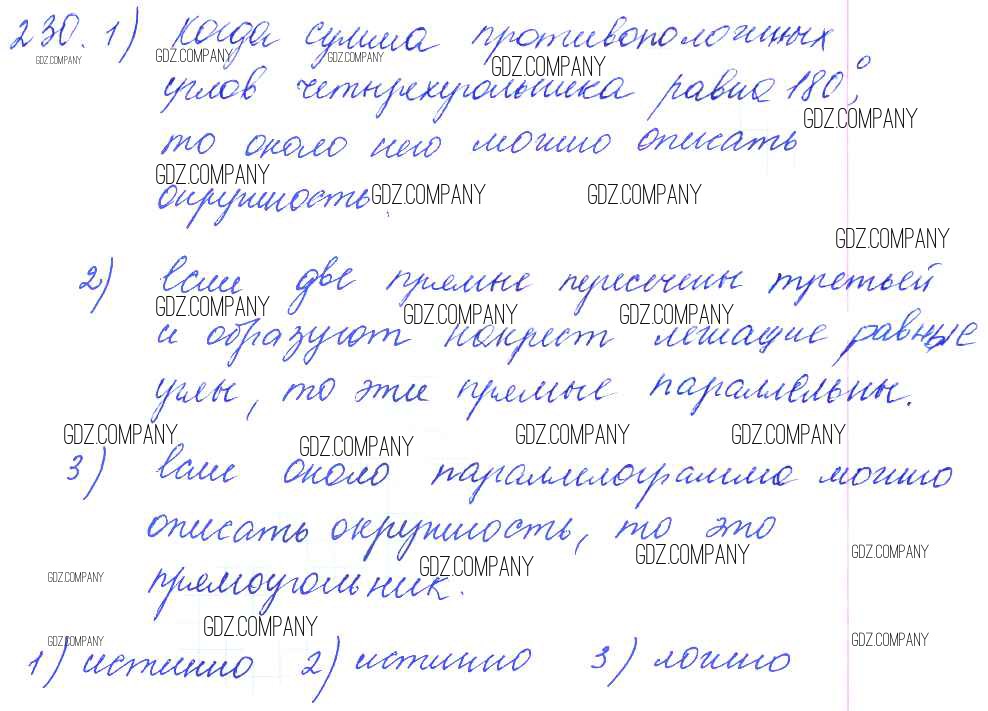 230. 1) Когда сумма противоположных
GDZ.COMPANY GDZ.COMPANY GDZ.COMPANY GDZ.COMPANY
углов четырехугольника равна 180°,
GDZ.COMPANY
то около него можно описать
GDZ.COMPANY GDZ.COMPANY GDZ.COMPANY
окружность.
GDZ.COMPANY
2) Если две прямые пересечены третьей
GDZ.COMPANY GDZ.COMPANY GDZ.COMPANY
и образуют накрест лежащие равные
углы, то эти прямые параллельны.
GDZ.COMPANY GDZ.COMPANY GDZ.COMPANY GDZ.COMPANY
3) Если около параллелограмма можно
описать окружность, то это
GDZ.COMPANY GDZ.COMPANY GDZ.COMPANY GDZ.COMPANY
прямоугольник.
GDZ.COMPANY
GDZ.COMPANY GDZ.COMPANY
1) истинно 2) истинно 3) ложно